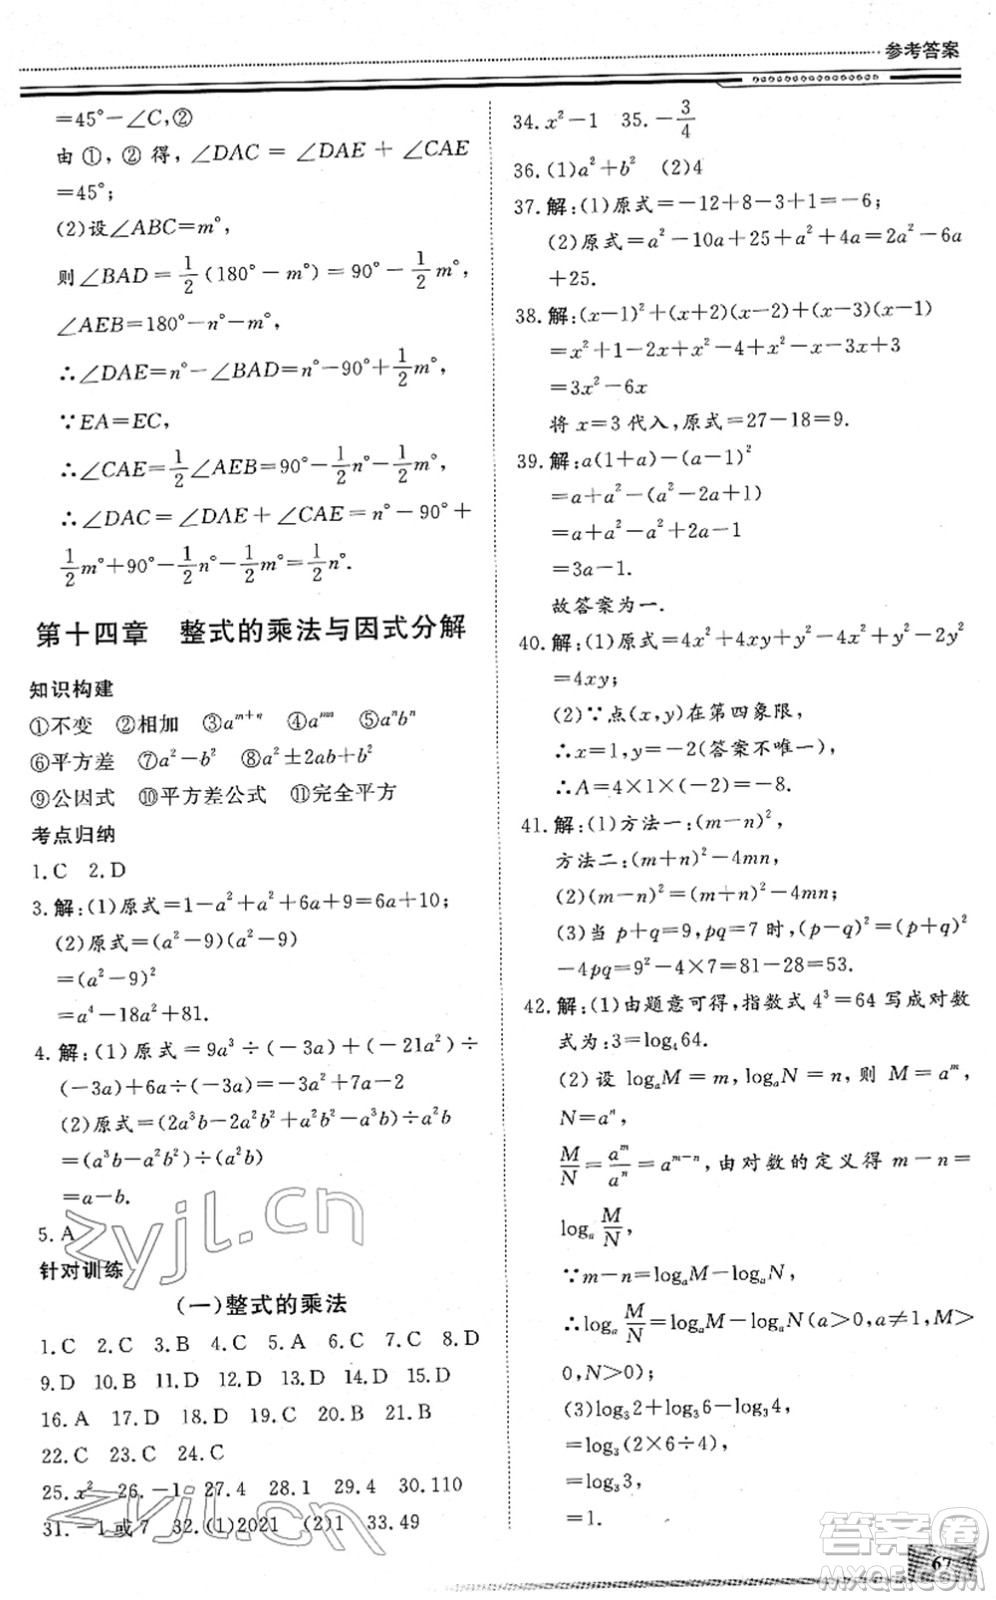 参考答案
=45°-∠C,②
由①,②得,∠DAC=∠DAE+∠CAE
=45°;
(2)设∠ABC=m°,
则∠BAD=1/2(180°-m°)=90°-1/2m°,
∠AEB=180°-n°-m°,
∴∠DAE=n°-∠BAD=n°-90°+1/2m°,
∵EA=EC,
∴∠CAE=1/2∠AEB=90°-1/2n°-1/2m°,
∴∠DAC=∠DAE+∠CAE=n°-90°+
1/2m°+90°-1/2n°-1/2m°=1/2n°.
第十四章 整式的乘法与因式分解
知识构建
①不变 ②相加 ③a^{m+n} ④a^{mn} ⑤a^n b^n
⑥平方差 ⑦a²-b² ⑧a²±2ab+b²
⑨公因式 ⑩平方差公式 ⑪完全平方
考点归纳
1.C 2.D
3.解:(1)原式=1-a²+a²+6a+9=6a+10;
(2)原式=(a²-9)(a²-9)
=(a²-9)²
=a⁴-18a²+81.
4.解:(1)原式=9a³÷(-3a)+(-21a²)÷
(-3a)+6a÷(-3a)=-3a²+7a-2
(2)原式=(2a³b-2a²b²+a²b²-a³b)÷a²b
=(a³b-a²b²)÷(a²b)
=a-b.
5.A
针对训练
(一)整式的乘法
1.C 2.C 3.B 4.C 5.A 6.C 7.C 8.D
9.D 10.D 11.B 12.B 13.D 14.D 15.D
16.A 17.D 18.D 19.C 20.B 21.C
22.C 23.C 24.C
25.x² 26.-1 27.4 28.1 29.4 30.110
31.-1或7 32.(1)2021 (2)1 33.49
34.x²-1 35.-3/4
36.(1)a²+b² (2)4
37.解:(1)原式=-12+8-3+1=-6;
(2)原式=a²-10a+25+a²+4a=2a²-6a
+25.
38.解:(x-1)²+(x+2)(x-2)+(x-3)(x-1)
=x²+1-2x+x²-4+x²-4x+3
=3x²-6x
将x=3代入,原式=27-18=9.
39.解:a(1+a)-(a-1)²
=a+a²-(a²-2a+1)
=a+a²-a²+2a-1
=3a-1.
故答案为一.
40.解:(1)原式=4x²+4xy+y²-4x²+y²-2y²
=4xy;
(2)∵点(x,y)在第四象限,
∴x=1,y=-2(答案不唯一),
∴A=4×1×(-2)=-8.
41.解:(1)方法一:(m-n)²,
方法二:(m+n)²-4mn,
(2)(m-n)²=(m+n)²-4mn;
(3)当p+q=9,pq=7时,(p-q)²=(p+q)²
-4pq=9²-4×7=81-28=53.
42.解:(1)由题意可得,指数式4³=64写成对数
式为:3=log₄64.
(2)设log_aM=m,log_aN=n,则M=a^m,
N=a^n,
M/N=a^m/a^n=a^{m-n},由对数的定义得m-n=
log_a M/N,
∵m-n=log_aM-log_aN,
∴log_a M/N=log_aM-log_aN(a>0,a≠1,M>
0,N>0);
(3)log₃2+log₃6-log₃4,
=log₃(2×6÷4),
=log₃3,
=1.
67
zyjl.cn
zyjl.cn
答案圈
MXQE.COM